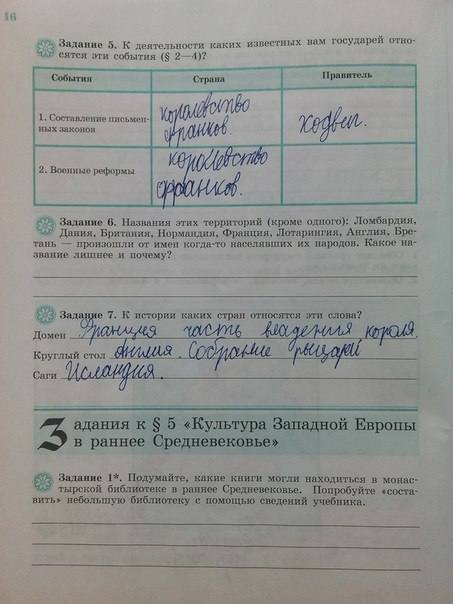 16
Задание 5. К деятельности каких известных вам государей отно-
сятся эти события (§ 2—4)?
События Страна Правитель
1. Составление письмен-
ных законов
королевство
франков.
ходвиг.
2. Военные реформы
королевство
франков.
Задание 6. Названия этих территорий (кроме одного): Ломбардия,
Дания, Британия, Нормандия, Франция, Лотарингия, Англия, Бре-
тань — произошли от имен когда-то населявших их народов. Какое на-
звание лишнее и почему?
Задание 7. К истории каких стран относятся эти слова?
Домен Франция часть владения короля.
Круглый стол Англия. Собрание рыцарей
Саги Исландия.
Задания к § 5 «Культура Западной Европы
в раннее Средневековье»
Задание 1*. Подумайте, какие книги могли находиться в монас-
тырской библиотеке в раннее Средневековье. Попробуйте «соста-
вить» небольшую библиотеку с помощью сведений учебника.